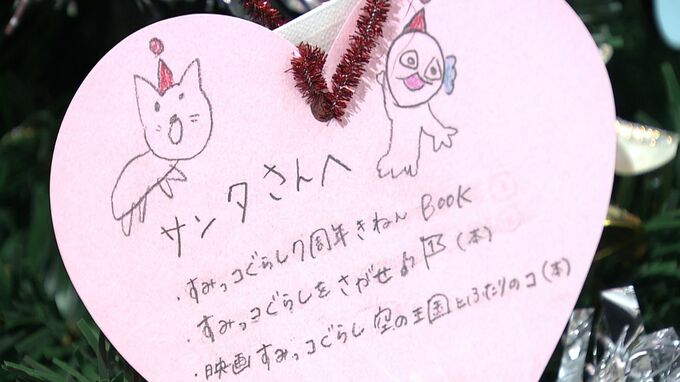 サンタさんへ
・すみっコぐらし7周年きねん BOOK
・すみっコぐらしをさがせ(本)
・映画すみっコぐらし 空の王国とふたりのコ(本)